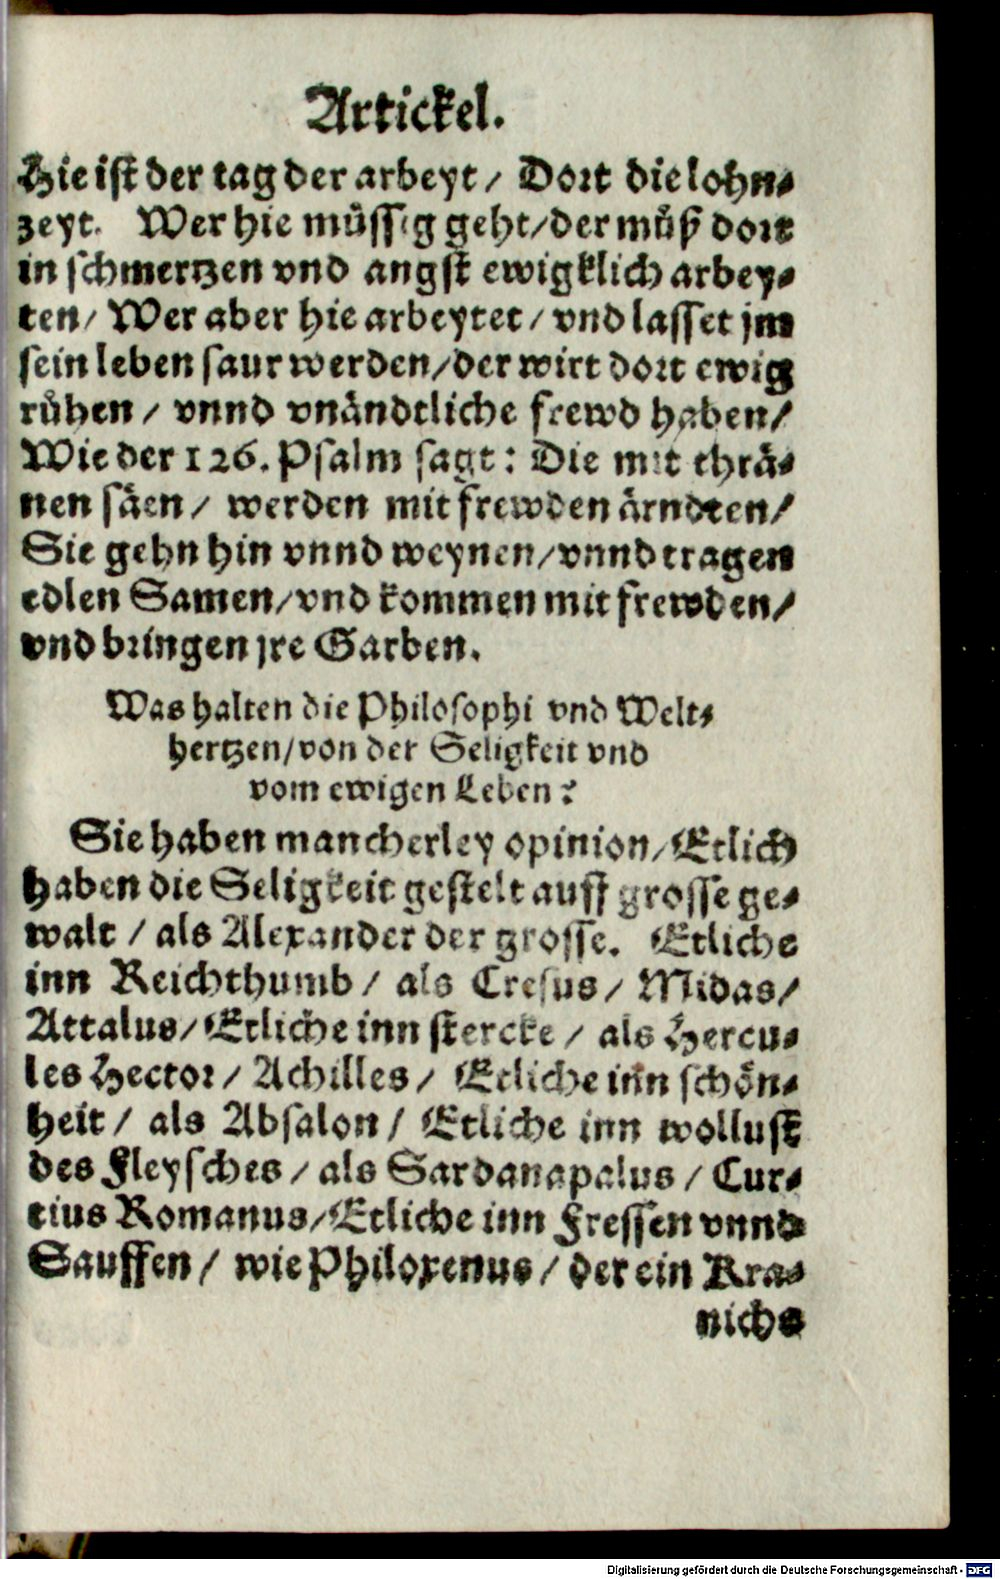 Artickel.
Hie ist der tag der arbeyt / Dort die lohn-
zeyt. Wer hie müssig geht / der můß dort
in schmertzen vnd angst ewigklich arbey-
ten / Wer aber hie arbeytet / vnd lasset jm
sein leben saur werden / der wirt dort ewig
růhen / vnnd vnändtliche frewd haben /
Wie der 126. Psalm sagt: Die mit thrä-
nen säen / werden mit frewden ärndten /
Sie gehn hin vnnd weynen / vnnd tragen
edlen Samen / vnd kommen mit frewden /
vnd bringen jre Garben.
Was halten die Philosophi vnd Welt-
hertzen / von der Seligkeit vnd
vom ewigen Leben?
Sie haben mancherley opinion / Etlich
haben die Seligkeit gestelt auff grosse ge-
walt / als Alexander der grosse. Etliche
inn Reichthumb / als Cresus / Midas /
Attalus / Etliche inn stercke / als Hercu-
les Hector / Achilles / Etliche inn schön-
heit / als Absalon / Etliche inn wollust
des Fleysches / als Sardanapalus / Cur-
tius Romanus / Etliche inn Fressen vnnd
Sauffen / wie Philoxenus / der ein Kra-
nichs
Digitalisierung gefördert durch die Deutsche Forschungsgemeinschaft - DFG